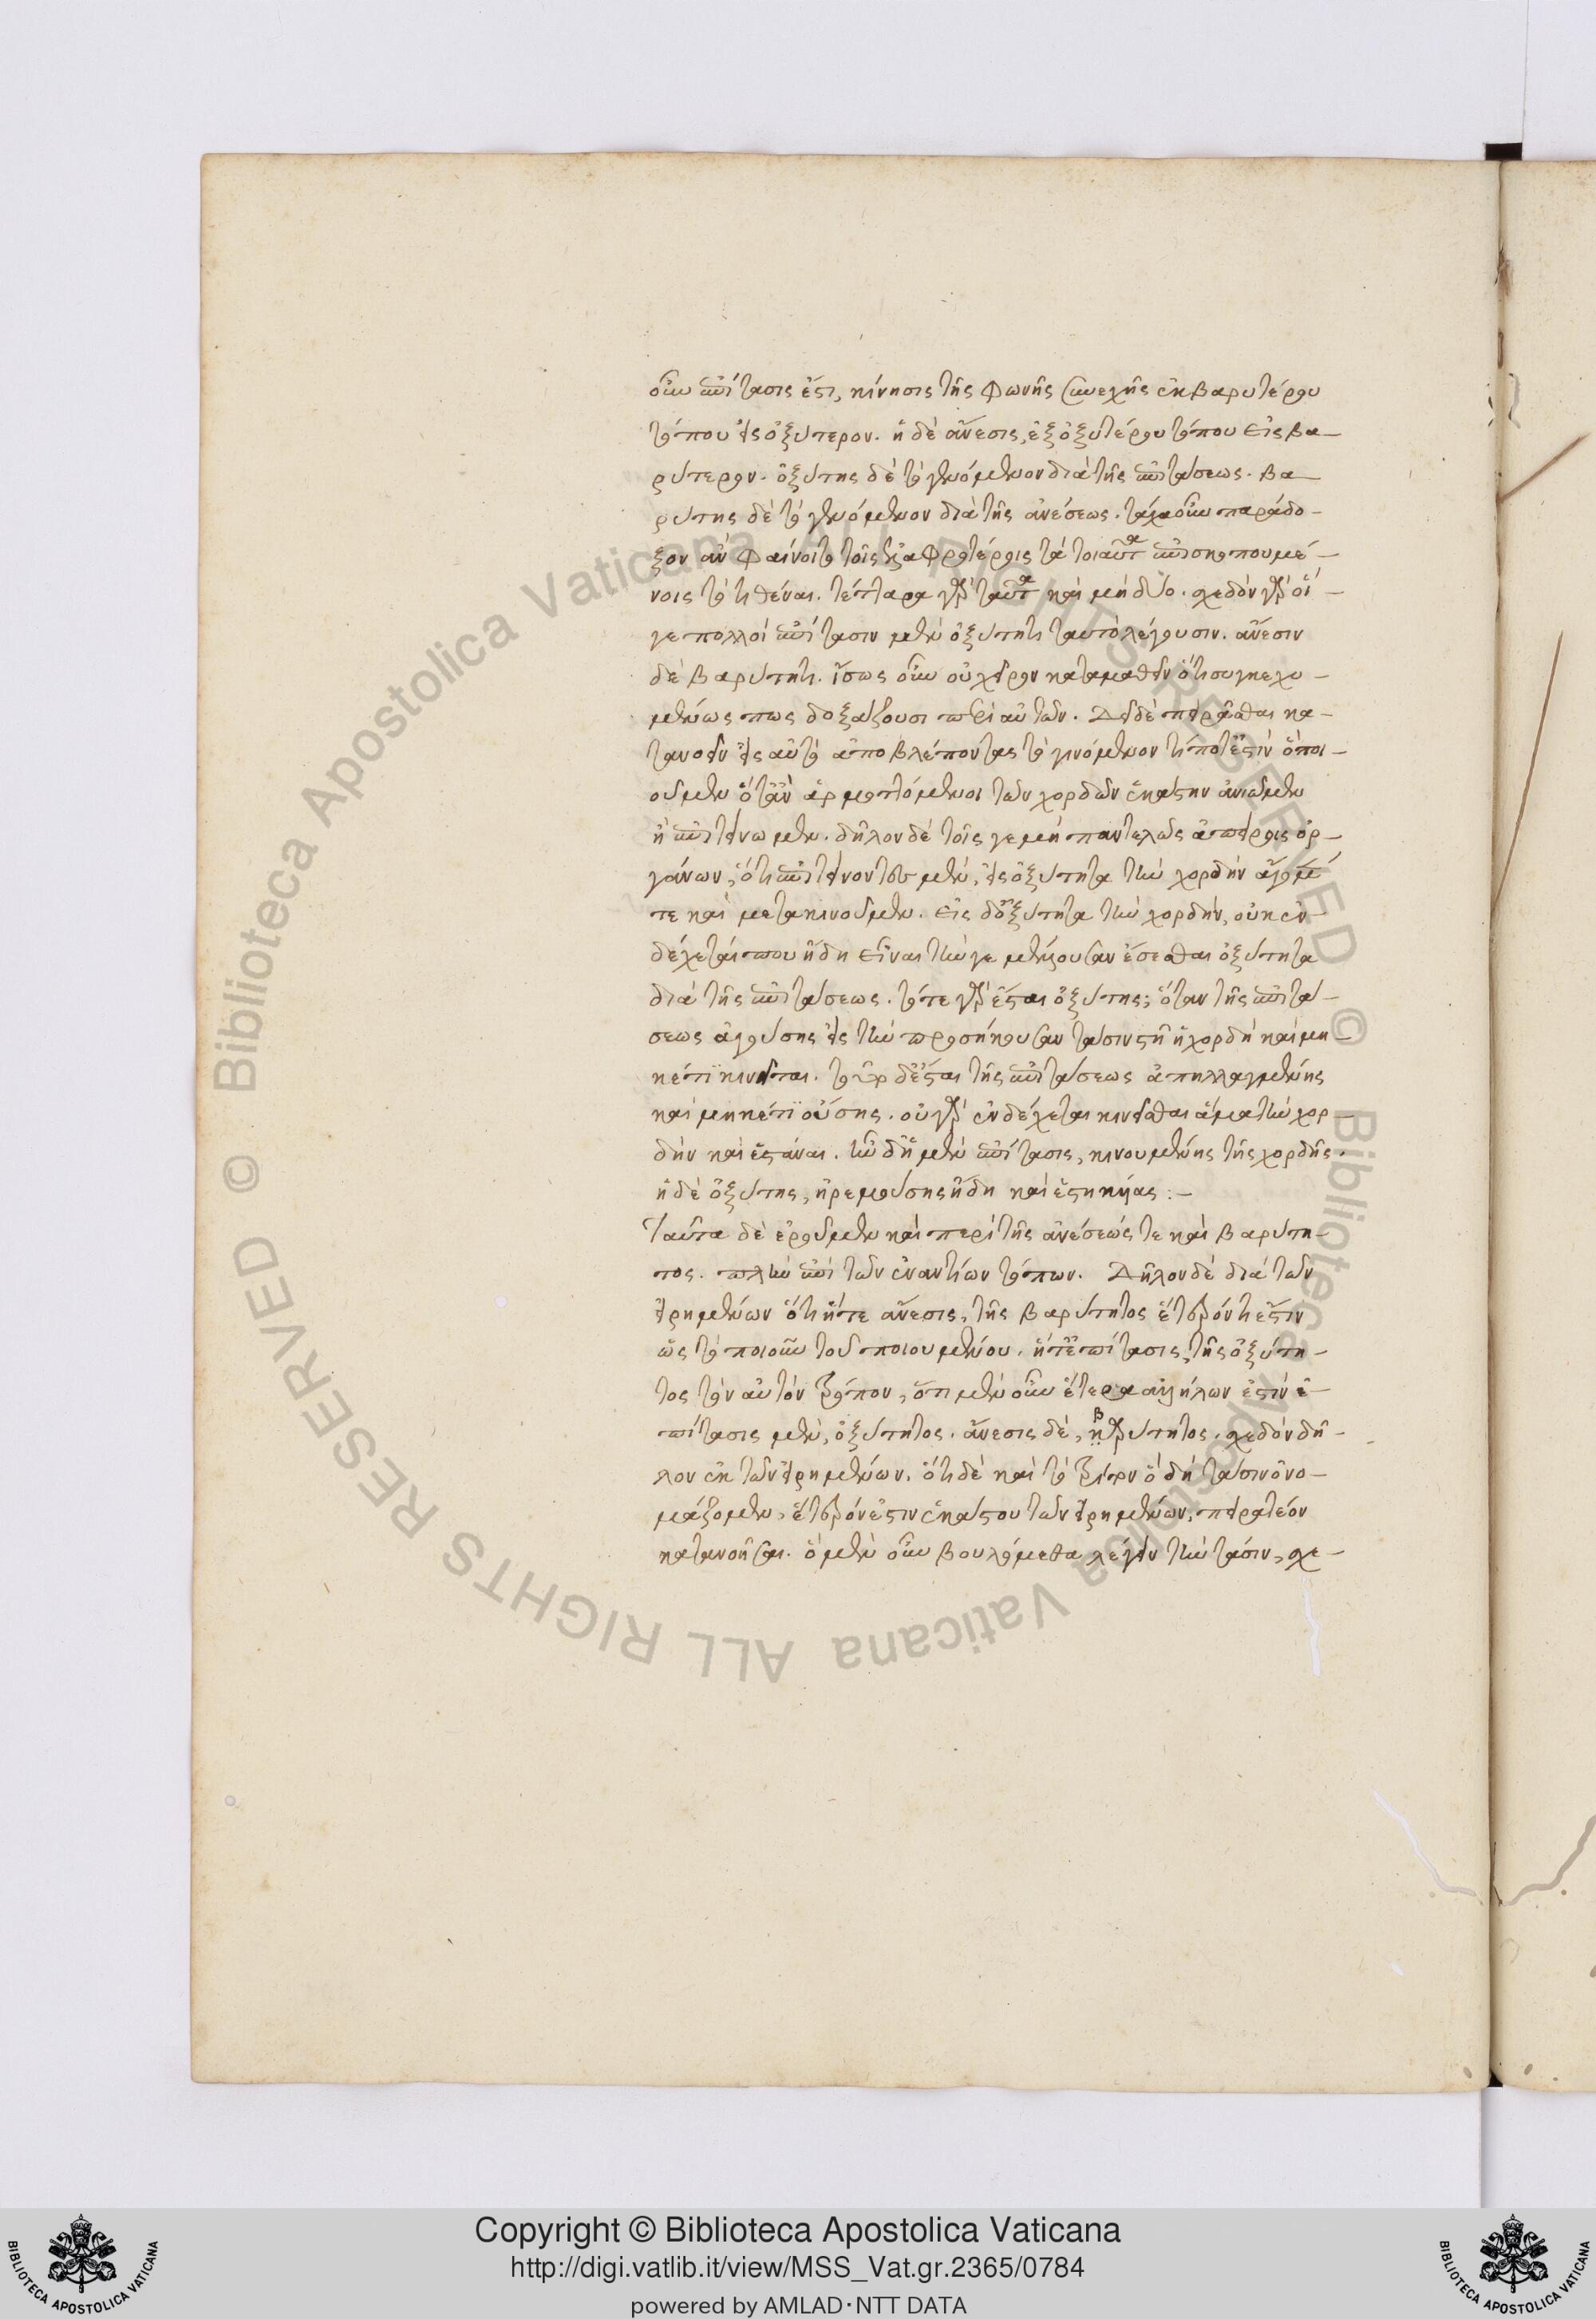 οὖν ἐπίτασις ἐστι, κίνησις τῆς φωνῆς συνεχὴς ἐκ βαρυτέρου
τόπου εἰς ὀξύτερον. ἡ δὲ ἄνεσις, ἐξ ὀξυτέρου τόπου εἰς βα–
ρύτερον. ὀξύτης δὲ τὸ γενόμενον διὰ τῆς ἐπιτάσεως. βα–
ρύτης δὲ τὸ γενόμενον διὰ τῆς ἀνέσεως. τάχα οὖν παράδο–
ξον ἂν φαίνοιτο τοῖς ἐλαφροτέροις τὰ τοιαῦτα ἐπισκοπουμέ–
νοις τὸ τιθέναι. τέτταρα γὰρ ταῦτα καὶ μὴ δύο. σχεδὸν γὰρ οἵ–
γε πολλοὶ ἐπίτασιν μὲν ὀξύτητι ταυτὸ λέγουσιν. ἄνεσιν
δὲ βαρύτητι. ἴσως οὖν οὐ χεῖρον καταμαθεῖν ὅτι συγκεχυ–
μένως πως δοξάζουσι περὶ αὐτῶν. Δεῖ δὲ πειρᾶσθαι κα–
τανοεῖν εἰς αὐτὸ ἀποβλέποντας τὸ γινόμενον τί ποτ' ἐστὶν ὃ ποι–
οῦμεν ὅταν ἁρμοττόμενοι τῶν χορδῶν ἑκάστην ἀνιῶμεν
ἢ ἐπιτείνωμεν. δῆλον δὲ τοῖς γε μὴ παντελῶς ἀπείροις ὀρ–
γάνων, ὅτι ἐπιτείνοντες μὲν, εἰς ὀξύτητα τὴν χορδὴν ἄγομέν
τε καὶ μετακινοῦμεν. εἰς δ' ὀξύτητα τὴν χορδήν, οὐκ ἐν
δέχεται που ἤδη εἶναι τήν γε μέλλουσαν ἔσεσθαι ὀξύτητα
διὰ τῆς ἐπιτάσεως. τότε γὰρ ἔσται ὀξύτης, ὅταν τῆς ἐπιτά–
σεως ἀγούσης εἰς τὴν προσήκουσαν τάσιν στῇ ἡ χορδὴ καὶ μη
κέτι κινεῖται. τοῦτο δ' ἔσται τῆς ἐπιτάσεως ἀπηλλαγμένης
καὶ μηκέτι οὔσης. οὐ γὰρ ἐνδέχεται κινεῖσθαι ἅμα τὴν χορ–
δὴν καὶ ἑστάναι. ἦν δ' ἡ μὲν ἐπίτασις, κινουμένης τῆς χορδῆς.
ἡ δὲ ὀξύτης, ἠρεμούσης ἤδη καὶ ἑστηκυίας :–
Ταῦτα δὲ ἐροῦμεν καὶ περὶ τῆς ἀνέσεώς τε καὶ βαρύτη–
τος. πλὴν ἐπὶ τῶν ἐναντίων τόπων. Δῆλον δὲ διὰ τῶν
εἰρημένων ὅτι ἥτε ἄνεσις, τῆς βαρύτητος ἕτερόν τι ἐστιν
ὡς τὸ ποιοῦν τοῦ ποιουμένου. ἥτ' ἐπίτασις, τῆς ὀξύτη–
τος τὸν αὐτὸν τρόπον, ὅτι μὲν οὖν ἕτερα ἀλλήλων ἐστὶν ἐ–
πίτασις μὲν, ὀξύτητος. ἄνεσις δὲ, βαρύτητος, σχεδὸν δῆ–
λον ἐκ τῶν εἰρημένων. ὅτι δὲ καὶ τὸ τρίτον ὃ δὴ τάσιν ὀνο–
μάζομεν, ἕτερόν ἐστιν ἑκάστου τῶν εἰρημένων, πειρατέον
κατανοῆσαι. ὃ μὲν οὖν βουλόμεθα λέγειν τὴν τάσιν, σχε–
Copyright © Biblioteca Apostolica Vaticana
http://digi.vatlib.it/view/MSS_Vat.gr.2365/0784
powered by AMLAD·NTT DATA